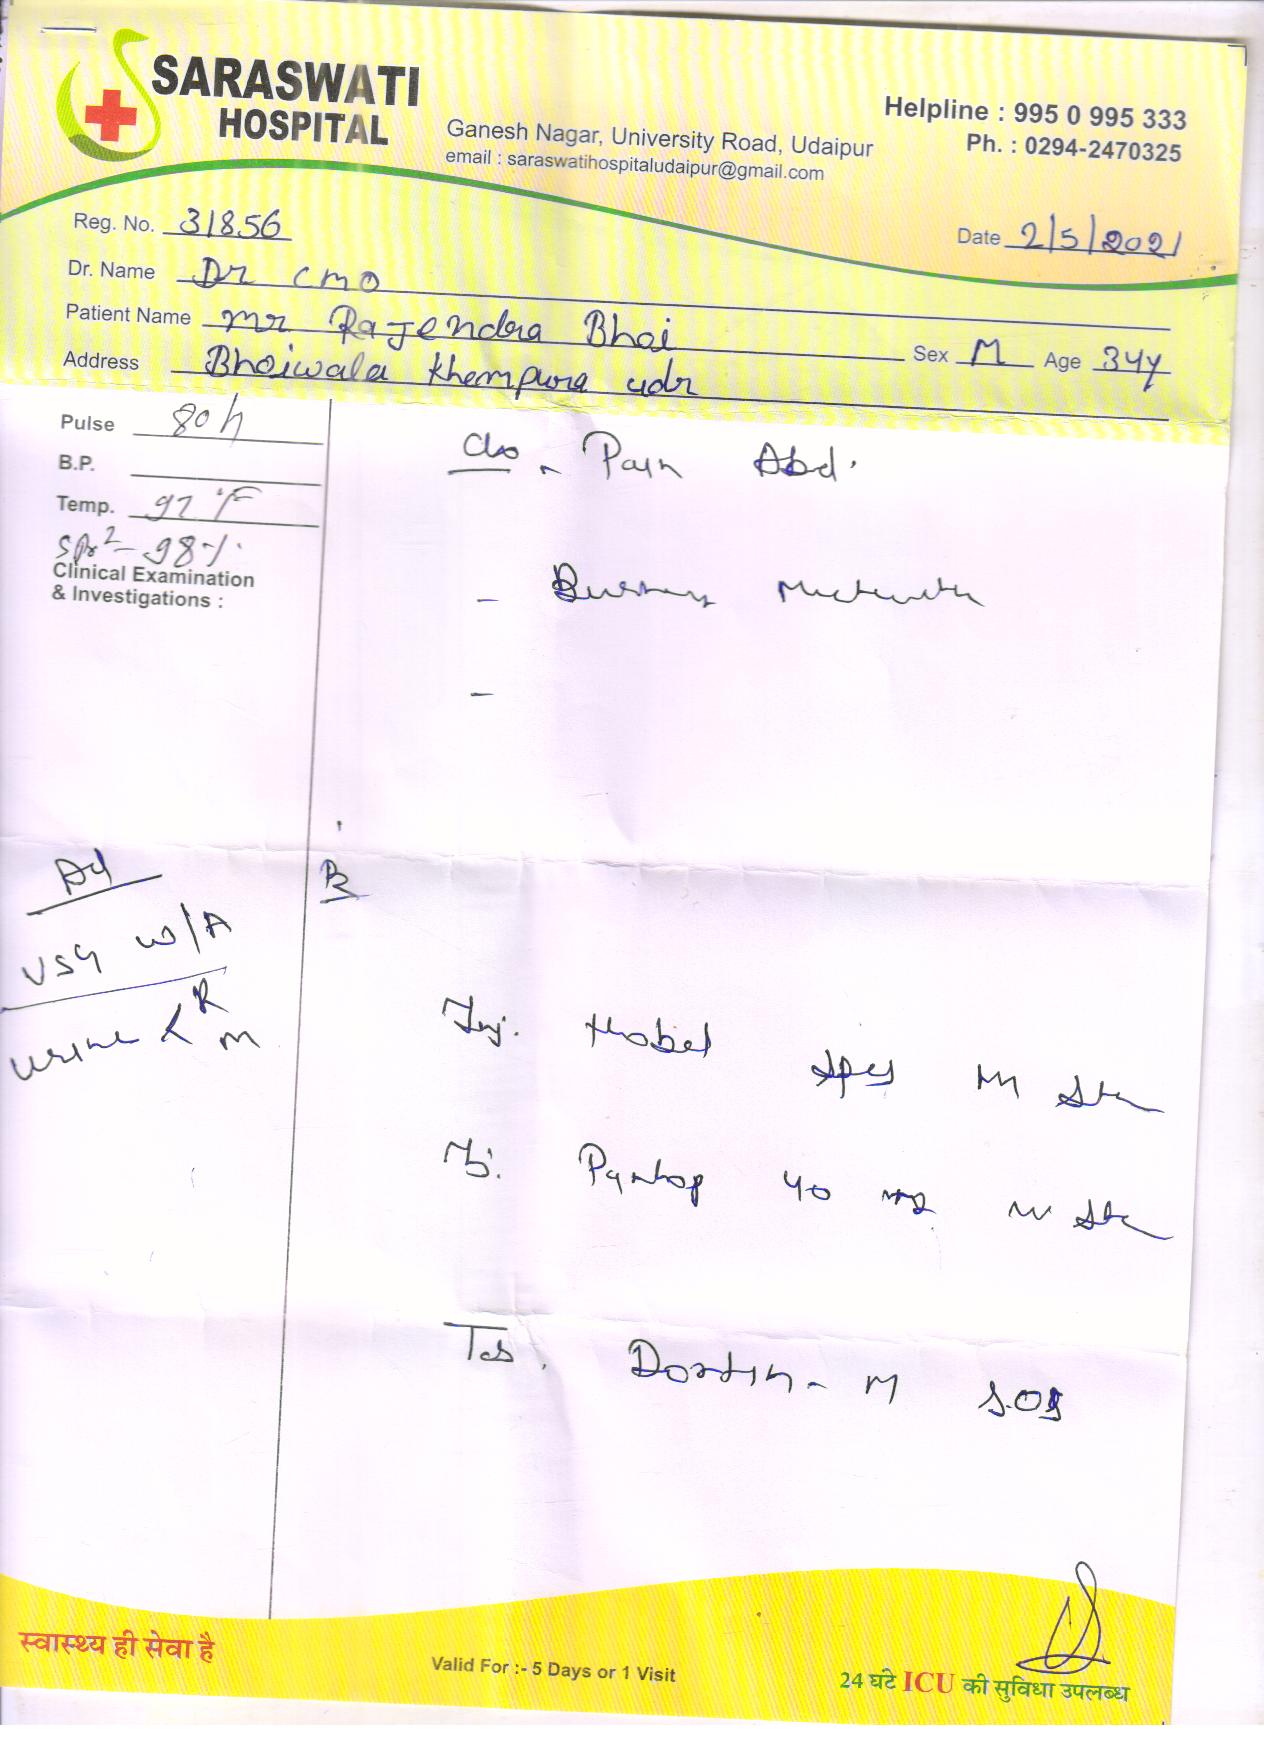 SARASWATI
HOSPITAL
Ganesh Nagar, University Road, Udaipur
email : saraswatihospitaludaipur@gmail.com
Helpline : 995 0 995 333
Ph. : 0294-2470325
Reg. No. 31856
Date 2/5/2021
Dr. Name Dr CMO
Patient Name Mr Rajendra Bhoi
Sex M Age 34y
Address Bhoiwala Khempura udr
Pulse 80
B.P.
Temp. 97 °F
SPo2 - 98%
Clinical Examination
& Investigations :
C/o - Pain Abd.
- Burning
-
Ad
USG W/A
Urine < R
M
Rx
Inj. IM Stat
Inj. Pantop 40 mg IV Stat
Tab. M SOS
स्वास्थ्य ही सेवा है
Valid For :- 5 Days or 1 Visit
24 घंटे ICU की सुविधा उपलब्ध